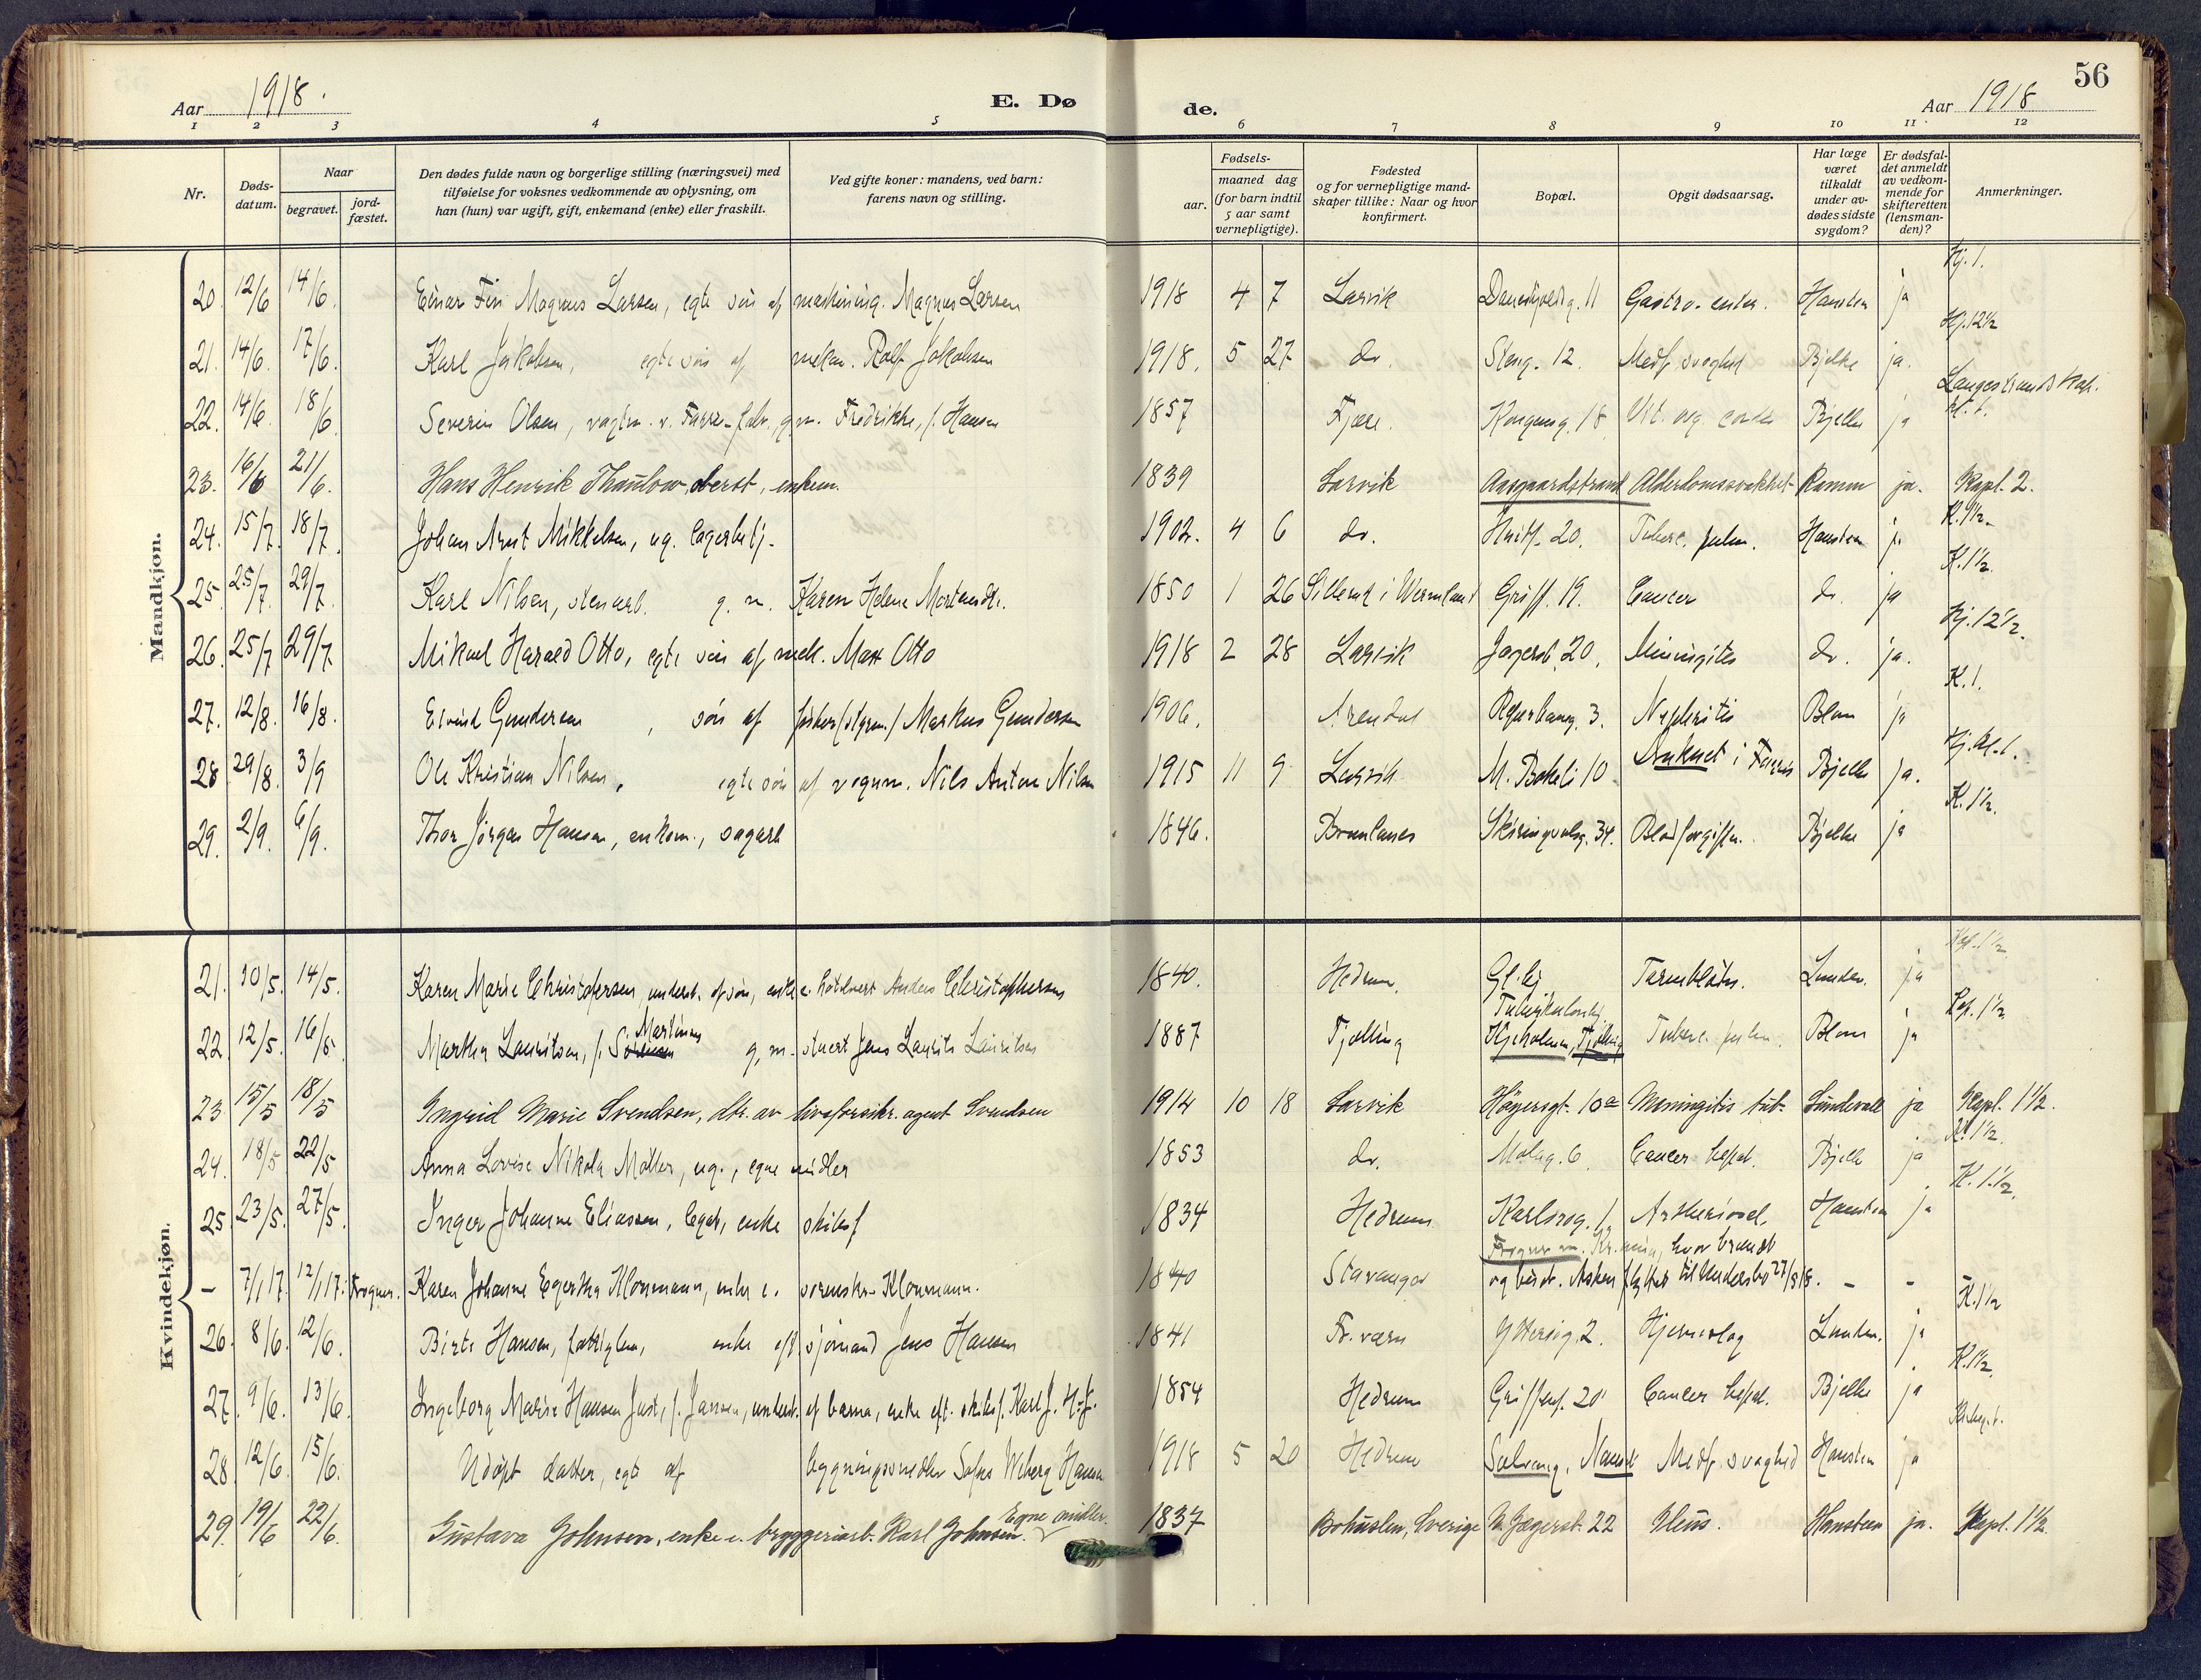 Aar 1918.
E. Dø de.
Aar 1918
56
1 2 3 4 5 6 7 8 9 10 11 12
Nr.
Døds-
datum.
Naar
begravet.
jord-
fæstet.
Den dødes fulde navn og borgerlige stilling (næringsvei) med
tilføielse for voksnes vedkommende av oplysning, om
han (hun) var ugift, gift, enkemand (enke) eller fraskilt.
Ved gifte koner: mandens, ved barn:
farens navn og stilling.
Fødsels-
aar.
maaned dag
(for barn indtil
5 aar samt
vernepligtige).
Fødested
og for vernepligtige mand-
skaper tillike: Naar og hvor
konfirmert.
Bopæl.
Opgit dødsaarsag.
Har læge
været
tilkaldt
under av-
dødes sidste
sygdom?
Er dødsfal-
det anmeldt
av vedkom-
mende for
skifteretten
(lensman-
den)?
Anmerkninger.
Mandkjøn.
Kj. 1.
20. 12/6 14/6. Einar Finn Magnus Larsen, egte søn af maskining. Magnus Larsen 1918 4 7 Larvik 11 Gastro-enter. Hansteen ja
Kj. 12½
21. 14/6. 17/6. Karl Jakobsen, egte søn af mekan. Rolf Jakobsen 1918. 5 27 do. Steng. 12. Medf. svaghed Bjelke ja.
Langestrands Kap.
kl. 1.
22. 14/6. 18/6. Severin Olsen, vagtm. v. Farris-fabr., g. m. Fredrikke, f. Hansen 1857 Fjære. Kongeg. 18 Vit. org. cordis Bjelke ja
23. 16/6 21/6. Hans Henrik Thaulow, oberst, enkem. 1839 Larvik Aasgaardstrand Alderdomssvakhet Ramm ja. Kapl. 2.
K. 1½
24. 15/7. 18/7. Johan Arnt Mikkelsen, ug. lagerbetj. 1902. 4 6 do. Huitf. 20. Tuberc. pulm. Hansteen j.
K. 1½.
25. 25/7. 29/7. Karl Nilsen, stenarb. g. m. Karen Helene Mortensdtr. 1850 1 26 i Wermland Griff. 19. Cancer do. ja
Kj. 12½.
26. 25/7 29/7. Mikael Harald Otto, egte søn af mek. Max Otto 1918 2 28 Larvik Jegersb. 20. Meningites do. ja.
K. 1.
27. 12/8. 16/8. Eivind Gundersen, søn af fisker (styrm.) Markus Gundersen 1906. Arendal 3. Nephritis Blom ja
Kj. kl. 1.
28 29/8. 3/9 Ole Kristian Nilsen, egte søn af vognm. Nils Anton Nilsen 1915 11 9 Larvik M. Bøkeli 10 Druknet i Farris Bjelke ja.
K. 1½.
29. 2/9. 6/9. Thor Jørgen Hansen, enkem., sagarb 1846. Brunlanes Skiringsalsg. 34. Blodforgiftn. Bjelke ja
Kvindekjøn.
Kap. 1½
21. 10/5. 14/5. Karen Marie Christofersen, underst. af søn, enke e. Anders Christophersen 1840. Hedrum. Gl. Tarmblødn. Lunden. ja
Kap. 1½
22. 12/5. 16/5. Martha Lauritsen, f. Sørensen Martinsen g. m. stuert Jens Laurits Lauritsen 1887 Fjelling Tuberkulosehj. Kjeholmen, Fjelling Tuberc. pulm. Blom ja
23 15/5 18/5 Ingrid Marie Svendsen, dtr. av livsforsikr. agent Svendsen 1914 10 18 Larvik Høyersgt. 10a Meningitis tub. Sundevall ja Kapl. 1½.
K. 1½.
24. 18/5 22/5 Anna Lovise Nikola Møller, ug., egne midler 1853 do. Møllng. 6. Cancer hepat. Bjelke ja
K. 1.½.
25. 23/5. 27/5. Inger Johanne Eliassen, legat, enke skibsf 1834 Hedrum Karlsrog. 1. Artheriosel. Hansteen ja
– 7/1 17. 12/1 17. Frogner. Karen Johanne Egertha Klonmann, enke e. sorenskr. Klonmann. 1840 Stavanger Frogner m. Kr.ania, hvor brændt og bisat. Asken flyttet til Undersbo 27/5 18. – –
K. 1½
26. 8/6. 12/6. Birte Hansen, fattiglem, enke eft sjømand Jens Hansen 1841 Fr.værn Yttersøg. 2. Hjerneslag Lunden. ja
K. 1½
27. 9/6. 13/6. Ingeborg Marie Hansen Just, f. Jansen, underst. af barna, enke eft. skibsf. Karl J. H. J. 1854 Hedrum Griffenf. 20 Cancer hepat. Bjelke ja
28 12/6. 15/6. Udøpt datter, egte af bygningssnedker Sofus Wiberg Hansen 1918 5 20 Hedrum Solvang, Nanset Medf. svaghed Hansteen ja
29. 19/6 22/6. Gustava Johnsen, enke e. bryggeriarb. Karl Johnsen. Egne midler. 1837 Bohuslen, Sverige N. Jægersb. 22 Ileus. Hansteen ja. Kapl. 1½.